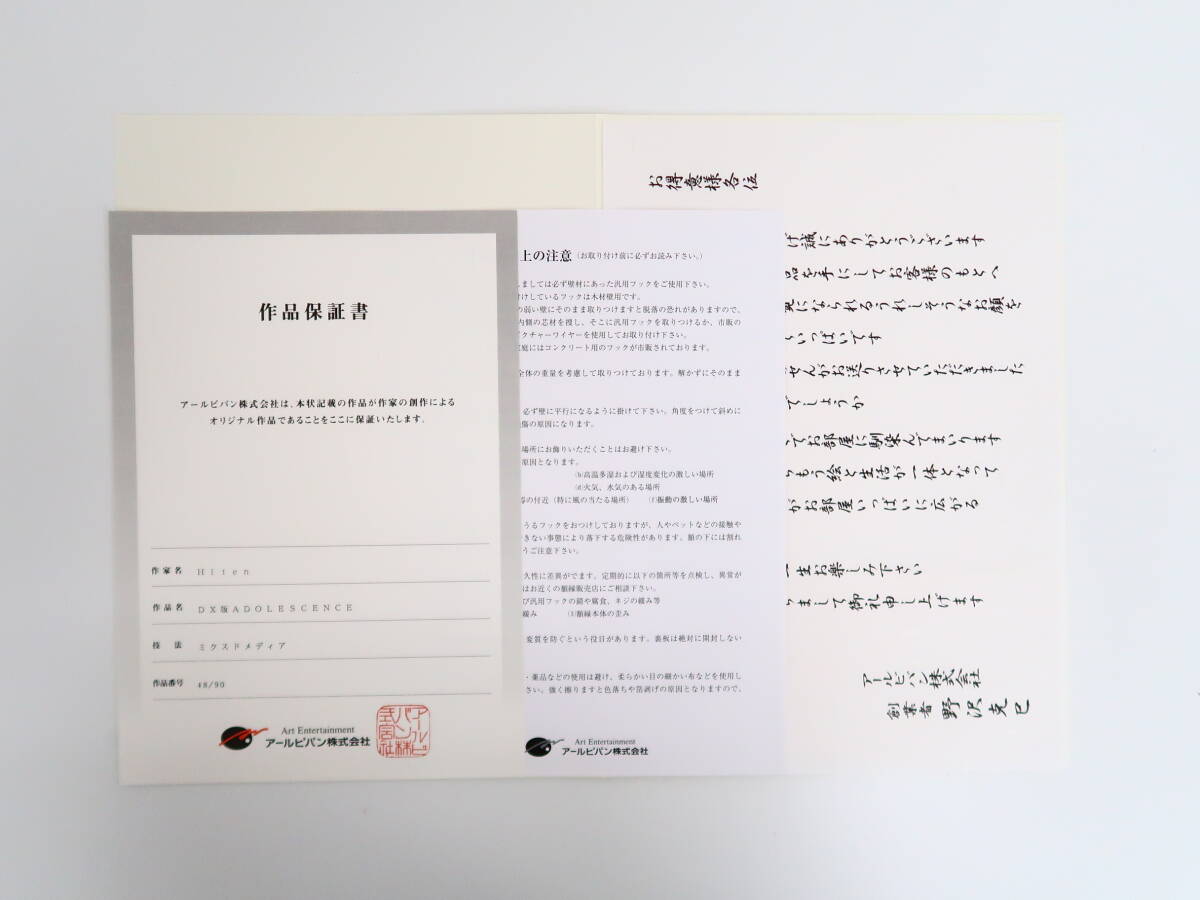 作品保証書
アールビバン株式会社は、本状記載の作品が作家の創作による
オリジナル作品であることをここに保証いたします。
作家名 Hiten
作品名 DX版ADOLESCENCE
技 法 ミクスドメディア
作品番号 48/90
Art Entertainment
アールビバン株式会社
上の注意（お取り付け前に必ずお読み下さい。）
しましては必ず壁材にあった汎用フックをご使用下さい。
付けしているフックは木材壁用です。
の弱い壁にそのまま取りつけますと脱落の恐れがありますので、
内側の芯材を捜し、そこに汎用フックを取りつけるか、市販の
クチャーワイヤーを使用してお取り付け下さい。
家庭にはコンクリート用のフックが市販されております。
全体の重量を考慮して取りつけております。解かずにそのまま
必ず壁に平行になるように掛けて下さい。角度をつけて斜めに
傷の原因になります。
場所にお飾りいただくことはお避け下さい。
原因となります。
(b)高温多湿および湿度変化の激しい場所
(d)火気、水気のある場所
の付近（特に風の当たる場所） (f)振動の激しい場所
うるフックをおつけしておりますが、人やペットなどの接触や
できない事態により落下する危険性があります。額の下には割れ
うご注意下さい。
久性に差異がでます。定期的に以下の箇所等を点検し、異常が
はお近くの額縁販売店にご相談下さい。
び汎用フックの錆や腐食、ネジの緩み等
緩み (f)額縁本体の歪み
変質を防ぐという役目があります。裏板は絶対に開封しない
・薬品などの使用は避け、柔らかい目の細かい布などを使用し
さい。強く擦りますと色落ちや箔剥げの原因となりますので、
Art Entertainment
アールビバン株式会社
お得意様各位
げ誠にありがとうございます
品を手にしてお客様のもとへ
になられるうれしそうなお顔を
いっぱいです
せんがお送りさせていただきました
でしょうか
てお部屋に馴染んでまいります
もう絵と生活が一体となって
がお部屋いっぱいに広がる
一生お楽しみ下さい
りまして御礼申し上げます
アールビバン株式会社
創業者 野沢克巳